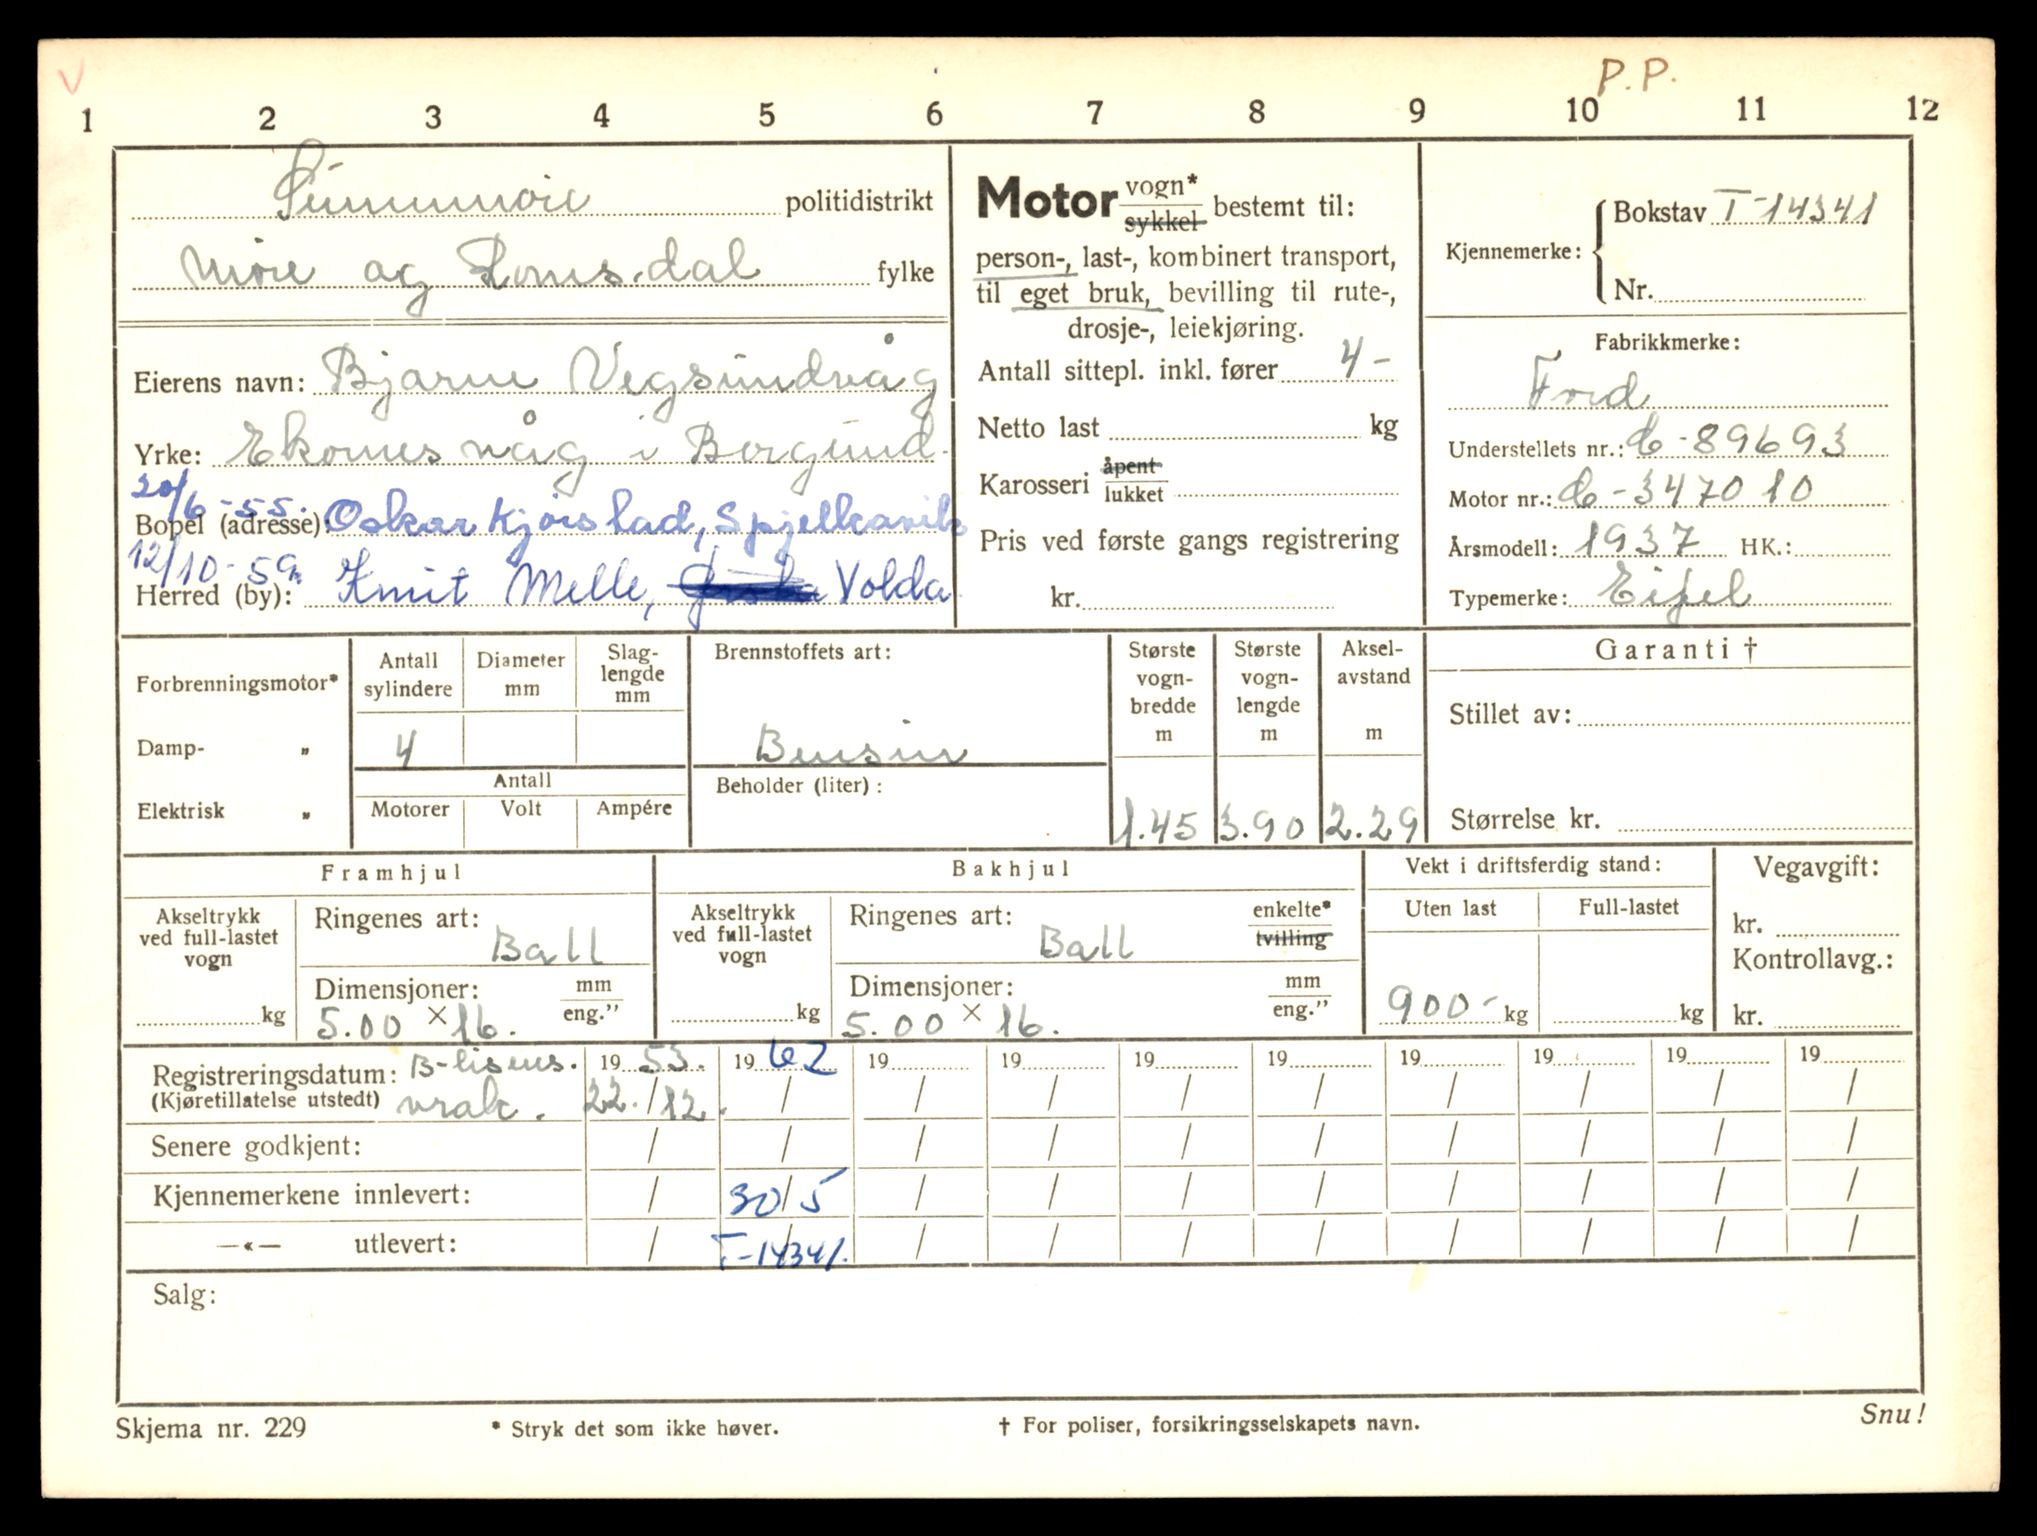 V
P.P.
1 2 3 4 5 6 7 8 9 10 11 12
Sunnmøre politidistrikt
Møre og Romsdal fylke
Eierens navn: Bjarne Vegsundvåg
Yrke: Ekornesvåg i Borgund.
20/6-55.
Bopel (adresse): Oskar Kjørstad, Spjelkavik
12/10-59.
Herred (by): Knut Melle, Volda
Motor vogn* sykkel bestemt til:
person-, last-, kombinert transport,
til eget bruk, bevilling til rute-,
drosje-, leiekjøring.
Antall sittepl. inkl. fører 4-
Netto last kg
Karosseri åpent lukket
Pris ved første gangs registrering
kr.
Kjennemerke: Bokstav T-14341
Nr.
Fabrikkmerke:
Ford
Understellets nr.: C-89693
Motor nr.: C-347010
Årsmodell: 1937 HK.:
Typemerke: Eifel
Forbrenningsmotor*
Damp- „
Elektrisk „
Antall sylindere
Diameter mm
Slag-
lengde
mm
4
Antall
Motorer Volt Ampére
Brennstoffets art:
Bensin
Beholder (liter):
Største
vogn-
bredde
m
1.45
Største
vogn-
lengde
m
3.90
Aksel-
avstand
m
2.29
Garanti †
Stillet av:
Størrelse kr.
Framhjul
Akseltrykk
ved full-lastet
vogn
kg
Ringenes art:
Ball
Dimensjoner: mm
5.00 × 16. eng.”
Bakhjul
Akseltrykk
ved full-lastet
vogn
kg
Ringenes art: enkelte*
Ball tvilling
Dimensjoner: mm
5.00 × 16. eng.”
Vekt i driftsferdig stand:
Uten last Full-lastet
900- kg kg
Vegavgift:
kr.
Kontrollavg.:
kr.
Registreringsdatum: B-lisens. 19 53. 19 62 19 19 19 19 19 19 19 19
(Kjøretillatelse utstedt) vrak. 22./12. / / / / / / / / /
Senere godkjent: / / / / / / / / / /
Kjennemerkene innlevert: / 30/5 / / / / / / / /
—«— utlevert: / T-14341. / / / / / / / /
Salg:
Skjema nr. 229 * Stryk det som ikke høver. † For poliser, forsikringsselskapets navn. Snu!